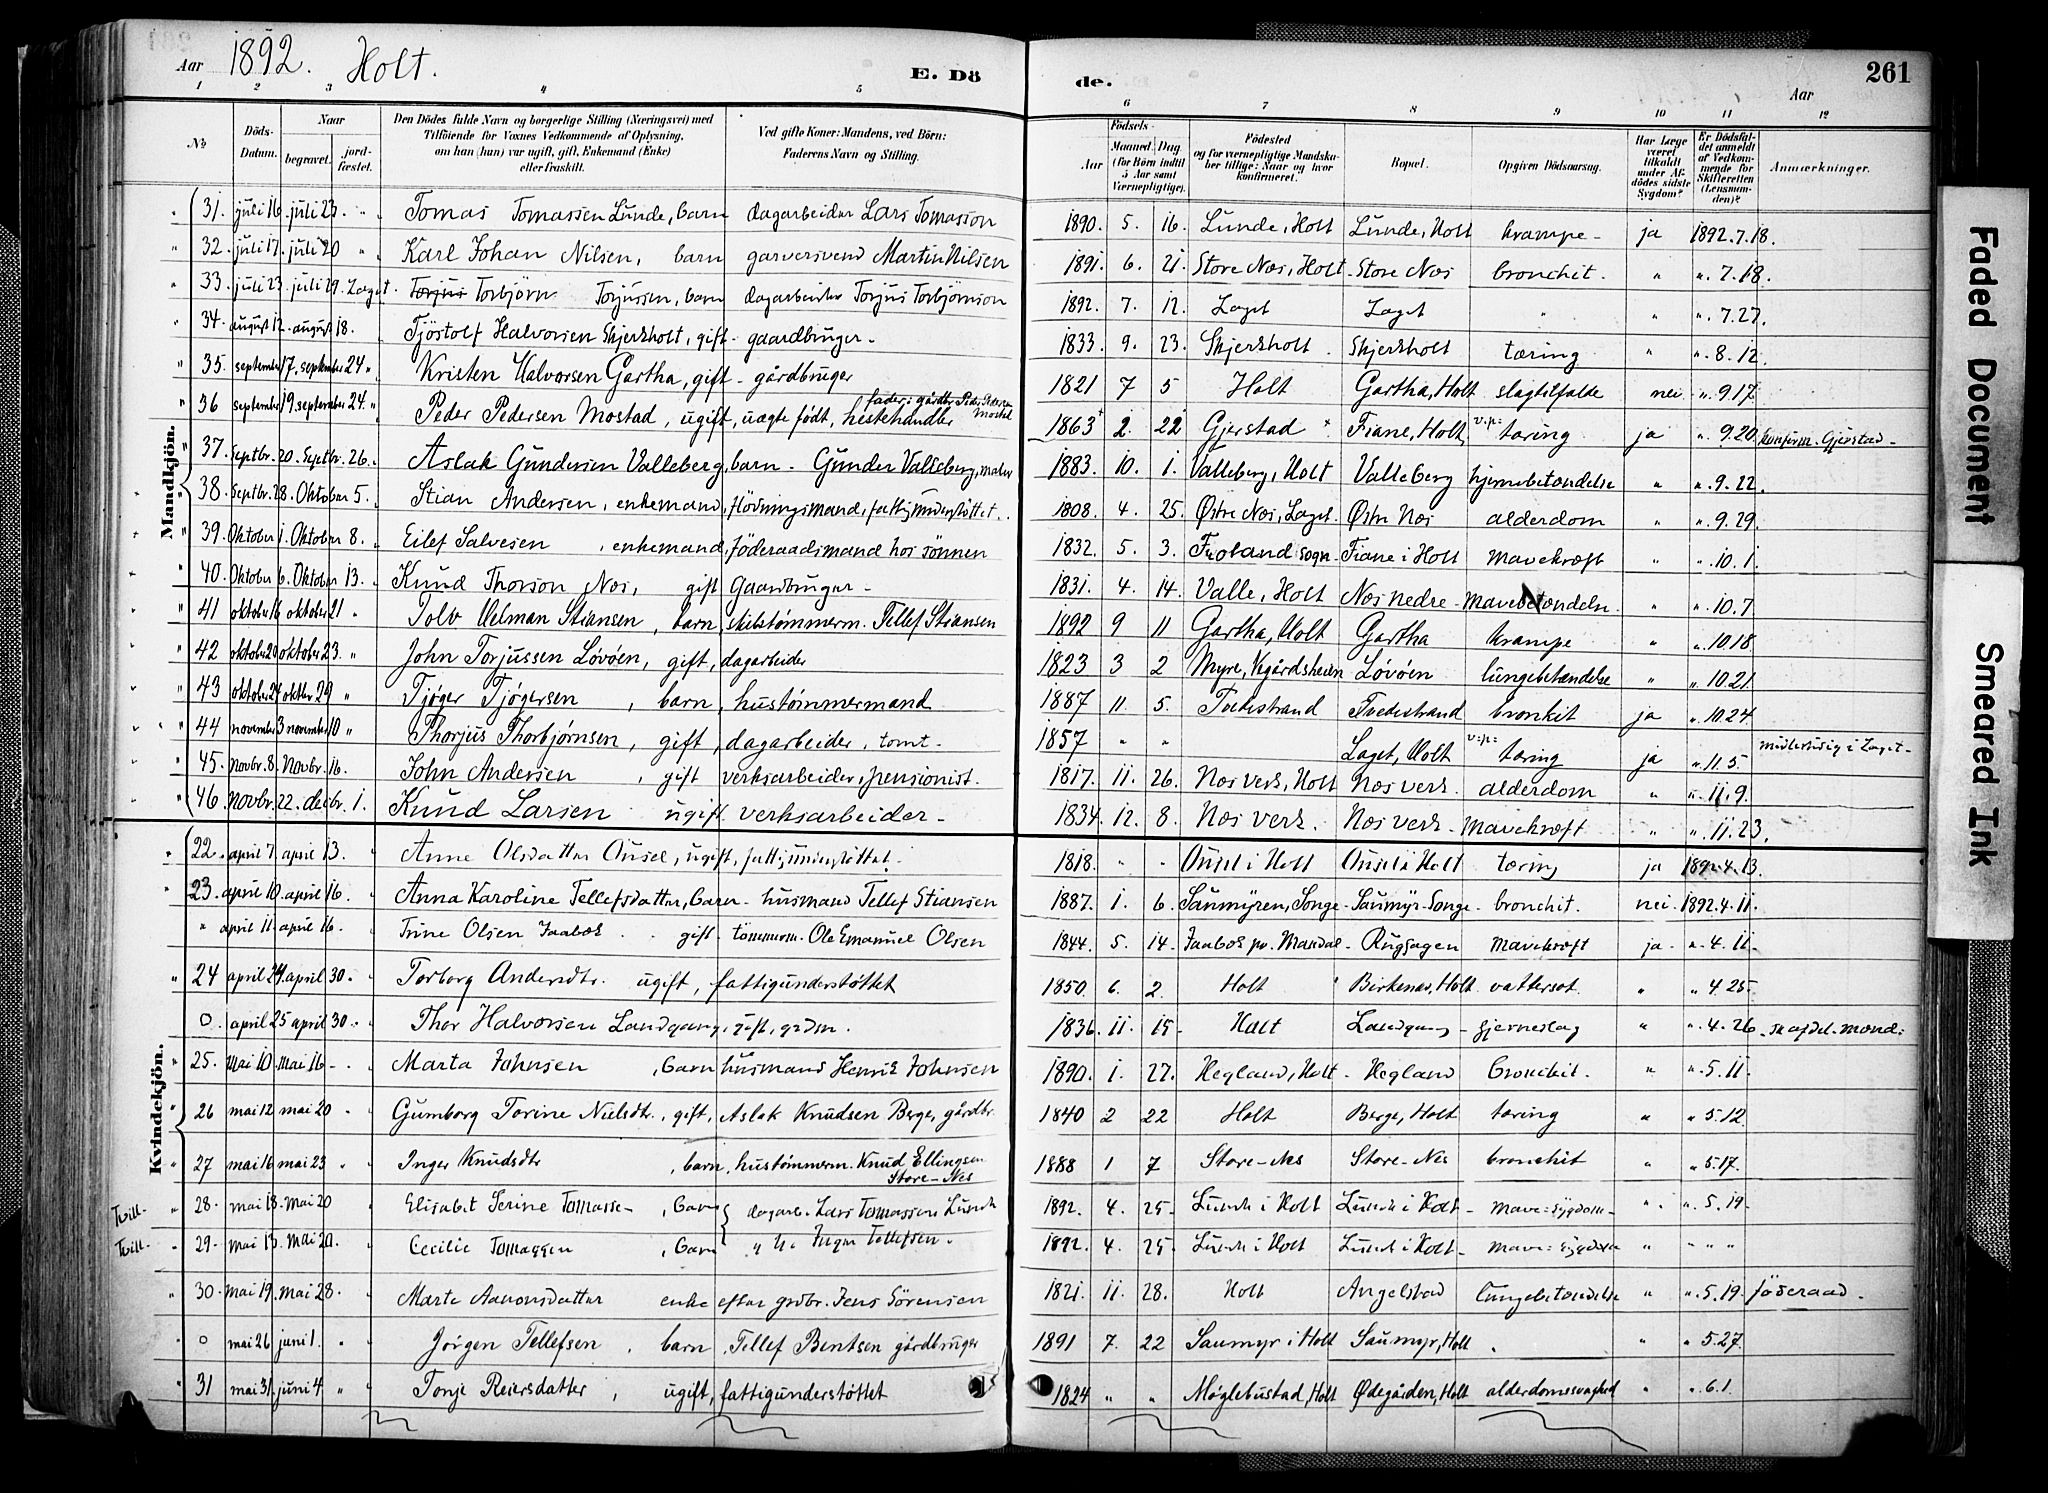 Aar 1892. Holt. E. Dö de. Aar 261
1 2 3 4 5 6 7 8 9 10 11 12
№ Döds-Datum. Naar begravet. jordfæstet. Den Dödes fulde Navn og borgerlige Stilling (Næringsvei) med Tilföiende for Voxnes Vedkommende af Oplysning, om han (hun) var ugift, gift, Enkemand (Enke) eller fraskilt. Ved gifte Koner: Mandens, ved Börn: Faderens Navn og Stilling. Födsels- Aar Maaned. Dag (for Börn indtil 5 Aar samt Værnepligtige). Födested og for værnepligtige Mandskaber tillige: Naar og hvor konfirmeret. Bopæl. Opgiven Dödsaarsag. Har Læge været tilkaldt under Afdödes sidste Sygdom? Er Dödsfaldet anmeldt af Vedkommende for Skifteretten (Lensmanden)? Anmærkninger.
Mandkjön.
31. juli 16. juli 23. " Tomas Tomassen Lunde, barn dagarbeider Lars Tomasson 1890. 5. 16. Lunde, Holt Lunde, Holt krampe - ja 1892.7.18.
32. juli 17. juli 20 " Karl Johan Nilsen, barn garversvend Martin Nilsen 1891. 6. 21. Store Næs, Holt - Store Næs bronchit. " " 7.18.
33. juli 23. juli 29. Laget. Torjus Torbjörn Torjussen, barn dagarbeider Torjus Torbjörnson 1892. 7. 12. Laget Laget " " " 7.27.
34. august 12. august 18. Tjöstolf Halvorsen Skjerkholt, gift - gaardbruger - 1833. 9. 23. Skjerkholt. Skjerkholt tæring " " 8.12.
35. september 17. september 24 " Kristen Halvorsen Gartha, gift - gårdbruger 1821 7 5 Holt Gartha, Holt slagtilfælde nei " 9.17.
36 september 19. september 24. " Peder Pedersen Mostad, ugift, uægte født, hestehandler 1863 2. 22 Gjerstad Fiane, Holt, v.p: tæring ja " 9.20. konfirm. Gjerstad -
37. Septbr. 20. Septbr. 26. Aslak Gundersen Valleberg, barn - Gunder Valleberg, maler 1883. 10. 1. Valleberg, Holt Valleberg hjernebetændelse " " 9.22.
38. Septbr. 28. Oktober 5. Stian Andersen, enkemand, flödningsmand, fattigunderstöttet. 1808. 4. 25. Østre Næs, Laget. Østre Næs alderdom " " 9.29.
39. Oktober 1. Oktober 8. Eilef Salvesen, enkemand, föderaadsmand hos sönnen 1832. 5. 3. Froland sogn. Fiane i Holt mavekræft " " 10.1.
40. Oktober 6. Oktober 13. Knud Thorson Næs, gift gaardbruger - 1831. 4. 14. Valle, Holt Næs nedre - mavebetændelse. " " 10.7
41 oktober 16 oktober 21 " Tolv Helman Stiansen, barn, skibstømmerm. Tellef Stiansen 1892 9 11 Gartha, Holt Gartha krampe " " 10.18
42 oktober 20 oktober 23. " John Torjussen Løvøen, gift, dagarbeider 1823 3 2 Myre, Vegårdsheien Løvøen lungebetændelse " " 10.21.
43 oktober 24 oktbr. 29 " Tjøger Tjøgersen, barn, hustømmermand 1887 11. 5. Tvedestrand Tvedestrand bronkit ja " 10.24
44 november 3 november 10 " Thorjus Thorbjørnsen, gift, dagarbeider, tomt. 1857 " " Laget, Holt v:p: tæring ja " 11.5 midlertidig i Laget -
45. Novbr. 8. Novbr. 16. John Andersen, gift verksarbeider, pensionist. 1817. 11. 26. Næs verk, Holt Næs verk. alderdom " " 11.9.
46. Novbr. 22. decbr. 1. Knud Larsen ugift verksarbeider - 1834. 12. 8. Næs verk. Næs verk - mavekræft " " 11.23.
Kvindekjön.
22. april 7. april 13. " Anne Olsdatter Ousel, ugift, fattigunderstöttet. 1818. " " Ousel i Holt Ousel i Holt tæring ja 1892.4.13.
23. april 10. april 16. " Anna Karoline Tellefsdatter, barn - husmand Tellef Stiansen 1887. 1. 6. Saumÿren, Songe - Saumÿr - Songe - bronchit. nei 1892.4.11.
" april 11. april 16. " Trine Olsen Faabæk gift - tömmerm. Ole Emanuel Olsen 1844. 5. 14. Faabæk pr. Mandal - Rugsagen mavekræft ja - " 4.11 -
24 april 24. april 30 - Torborg Andersdtr. ugift, fattigunderstøttet 1850. 6. 2. Holt Birkenæs, Holt vattersot. " " 4.25 -
0. april 25 april 30. Thor Halvorsen Landgang, gift, grdm. 1836. 11. 15 - Holt Landgang - hjerneslag " " 4.26 - skafdel. mænd:
25. Mai 10. Mai 16 - Marta Johnsen, barn husmand Henrik Johnsen 1890. 1. 27. Hegland, Holt - Hegland bronchit. " " 5.11 -
26 mai 12 mai 20 " Gumborg Torine Nielsdtr., gift, Aslak Knudsen Berge, gårdbr. 1840 2 22 Holt Berge, Holt tæring " " 5.12
27 mai 16 mai 23 " Inger Knudsdtr, barn, hustømmerm. Knud Ellingsen Store-Nes 1888 1 7 Store-Nes Store-Nes bronchit " " 5.17.
Tvill. 28. mai 18. Mai 20 " Elisabet Serine Tomasse -, barn dagarb. Lars Tomassen Lunde 1892. 4. 25 - Lunde i Holt Lunde i Holt - mave = sygdom - " " 5.19 -
Tvill. 29. Mai 13. Mai 20. " Cecilie Tomassen, barn " Inger Tellefsen - 1892. 4. 25 - Lunde i Holt Lunde i Holt - mave = sygdom " " " "
30. mai 19. mai 28. Marte Aanonsdatter enke efter grdbr. Jens Sörensen 1821. 11. 28. Holt Angelstad Lungebetændelse " " 5.19. föderaad.
0 mai 26 juni 1. " Jörgen Tellefsen, barn, Tellef Bentsen gårdbruger 1891 7. 22 Saumyr i Holt Saumyr, Holt " " " 5.27.
31 mai 31. juni 4 " Tonje Reiersdatter, ugift, fattigunderstøttet 1824 " " Møglebustad, Holt Ødegården, Holt alderdomssvaghed " " 6.1.
Faded Document
Smeared Ink